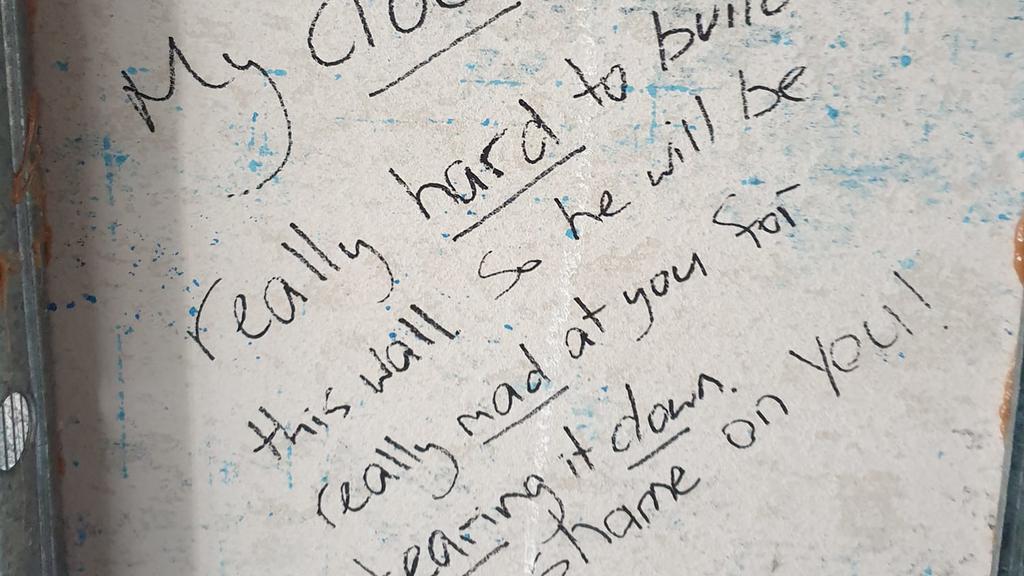 My
really hard to build
this wall so he will be
really mad at you for
tearing it down.
shame on you!